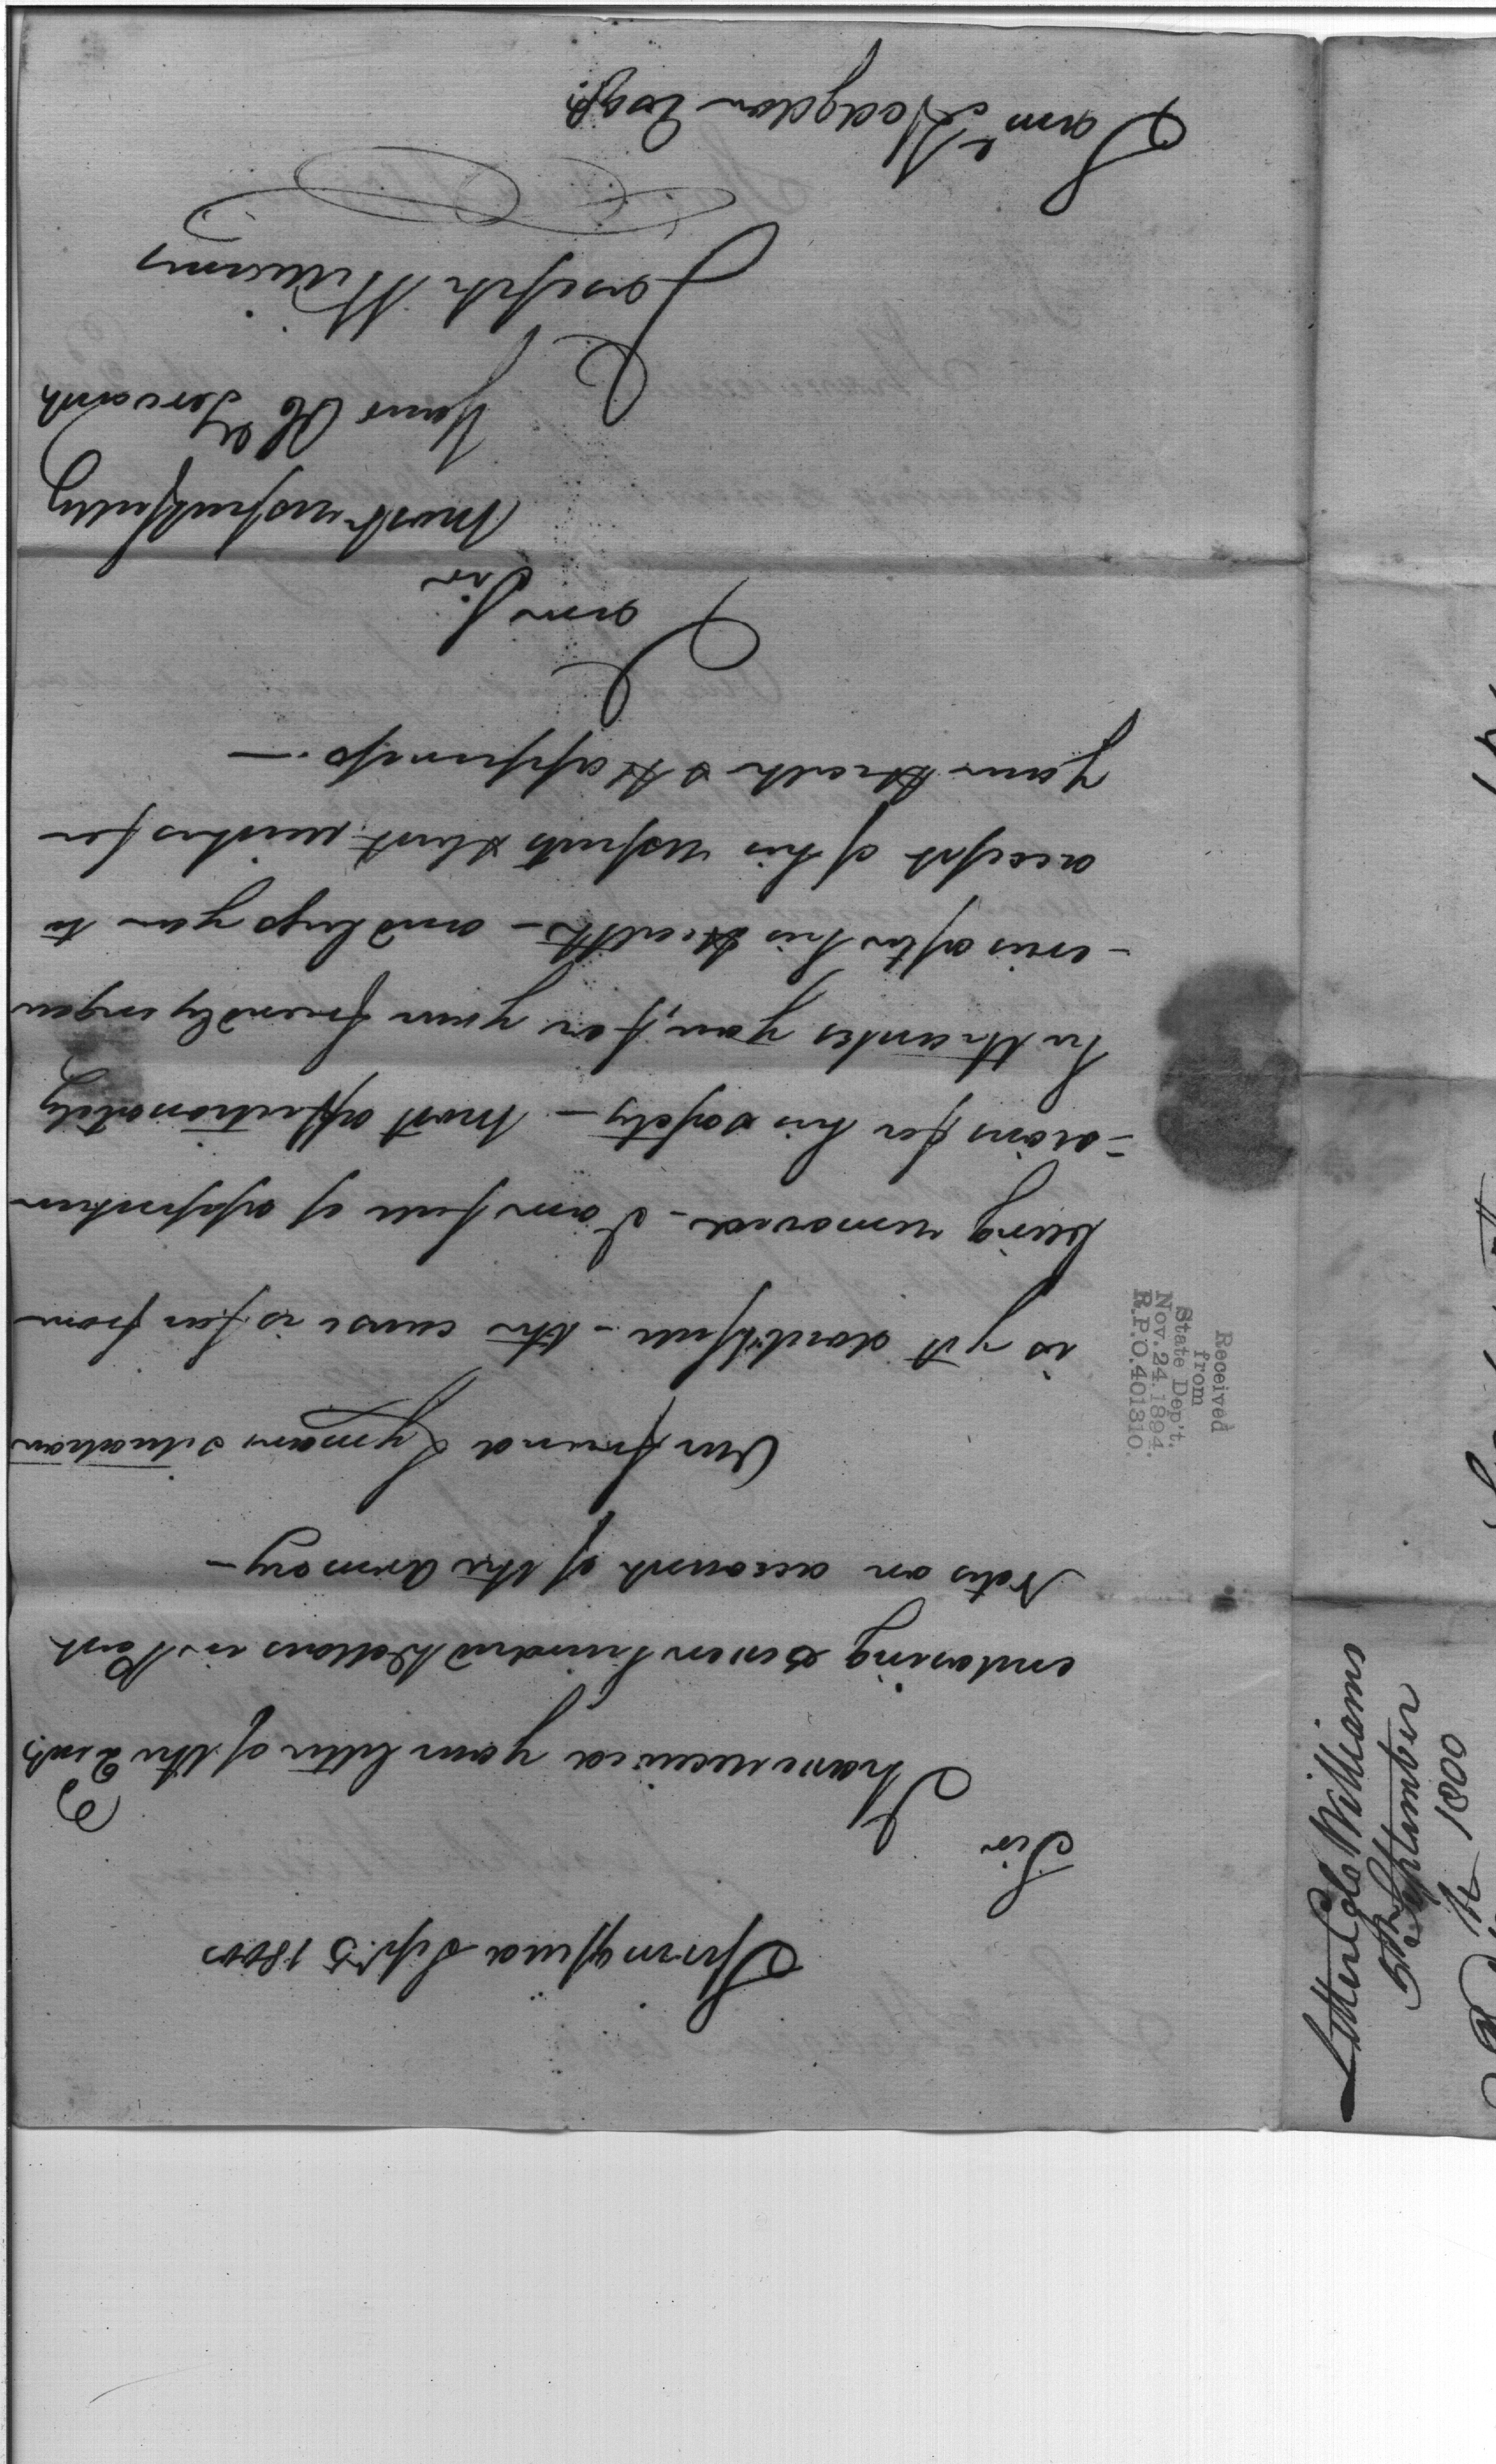 Springfield Sept. 5 1800
Sir
I have received your letter of the 2 inst.
enclosing seven hundred Dollars in Post
Notes on account of the Armory -
Our friend Lymans situation
is yet doubtfull - the cause is far from
being removed - I am full of apprehen
=sions for his safety - most affectionately
he thankes you, for your friendly inquir
-eries after his Health - and begs you to
accept of his respects & best wishes for
your Health & Happiness. -
I am Sir
Most respectfully
Your Ob Servant
Joseph Williams
Sam'l Hodgdon Esqr.
Received
from
State Dep't.
Nov. 24. 1894.
R.P.O. 401310.
Letter Williams
5th September
1800